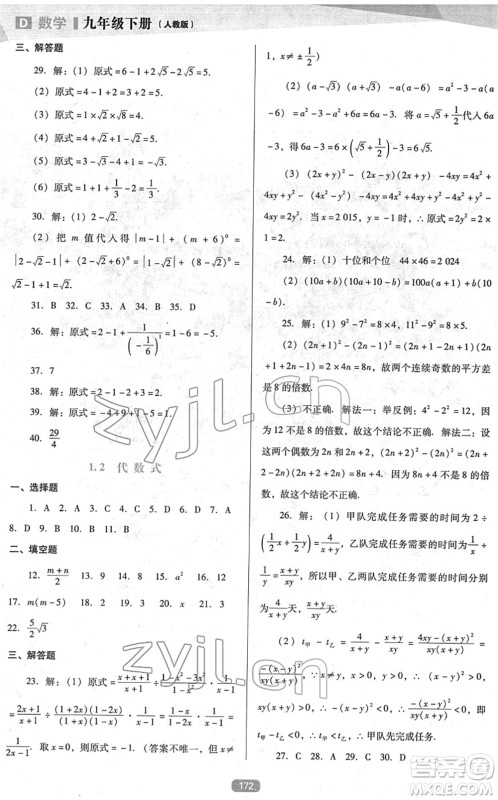 D 数学 九年级下册（人教版）
三、解答题
29. 解：（1）原式=6-1+2-2=5.
（2）原式=4-1+2-√2=5-√2.
（3）原式=1×√2×√8=4.
（4）原式=√2+1-√2=5.
（5）原式=3-√3-4+1=-√3.
（6）原式=1+1+1/3-2=1/3.
30. 解：（1）2-√2.
（2）把 m 值代入得 |m-1|+(m+6)⁰=
|2-√2-1|+(2-√2+6)⁰=|1-√2|+(8-√2)⁰=
√2-1+1=√2.
31. B 32. C 33. A 34. B 35. D
36. 解：原式=2-1+1/(-1/6)=1-6=-5.
37. 7
38. 解：原式=1-√3+2+√3=3.
39. 解：原式=-4+9+1-5=1.
40. 29/4
1.2 代数式
一、选择题
1. A 2. D 3. C 4. B 5. D 6. D 7. A
8. D 9. B 10. B 11. B
二、填空题
12. (m+n)/2 13. 9 14. -1 15. a² 16. 12
17. m(m-5) 18. 2 19. x 20. 4 21. 3
22. (5/2)√3
三、解答题
23. 解：（1）原式=(x+x+1)/(x+1)÷(1-x²-3x²)/(1-x²)·1/(x-1)
=(2x+1)/(x+1)÷((1+2x)(1-2x))/((1+x)(1-x))·1/(x-1)=
1/(2x-1). 取 x=0，则原式=-1.（答案不唯一，但 x≠
1，x≠±1/2）
（2）(a-√3)(a+√3)-a(a-6)=a²-3-a(a
-6)=a²-3-a²+6a=6a-3. 将 a=√5+1/2代入6a
-3，得 6a-3=6×(√5+1/2)-3=6√5.
（3）(2x+y)²-4x(x+y)=4x²+4xy+y²-
4xy=2y². 当 x=2 015，y=1 时，
=2.
24. 解：（1）十位和个位 44×46=2 024
（2）(10a+b)(10a+10-b)=100a(a+1)+b(10
-b).
25. 解：（1）9²-7²=8×4，11²-9²=8×5.
（2）(2n+1)²-(2n-1)²=(2n+1-2n+1)(2n
+1+2n-1)=2×4n=8n，故两个连续奇数的平方差
是 8 的倍数.
（3）不正确. 解法一：举反例：4²-2²=12，因
为 12 不是 8 的倍数，故这个结论不正确. 解法二：设
两个偶数为 2n 和 2n+2，(2n+2)²-(2n)²=(2n+2
-2n)(2n+2+2n)=8n+4，因为 8n+4 不是 8 的倍
数，故这个结论不正确.
26. 解：（1）甲队完成任务需要的时间为 2÷
(1/2x+1/2y)=4/(x+y)，乙队完成任务需要的时间为1/x+
1/y=(x+y)/xy，所以甲、乙两队完成任务需要的时间分别
为4/(x+y)天，(x+y)/xy天.
（2）t甲-t乙=4/(x+y)-(x+y)/xy=(4xy-(x+y)²)/(xy(x+y))=
-(x-y)²/(xy(x+y))，∵x≠y，x>0，y>0，∴t甲-t乙=-(x-y)²/(xy(x+y))
<0，∴t甲-t乙<0，即 t甲<t乙，∴甲队先完成任务.
27. C 28. A 29. C 30. C 31. D
172
zyjl.cn
zyjl.cn
答案圈
MXQE.COM